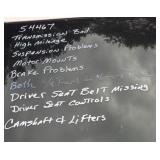 54467
Transmission Bad
High Mileage
Suspension Problems
Motor Mounts
Brake Problems
Both
Driver Seat Belt Missing
Driver Seat Controls
Camshaft & Lifters